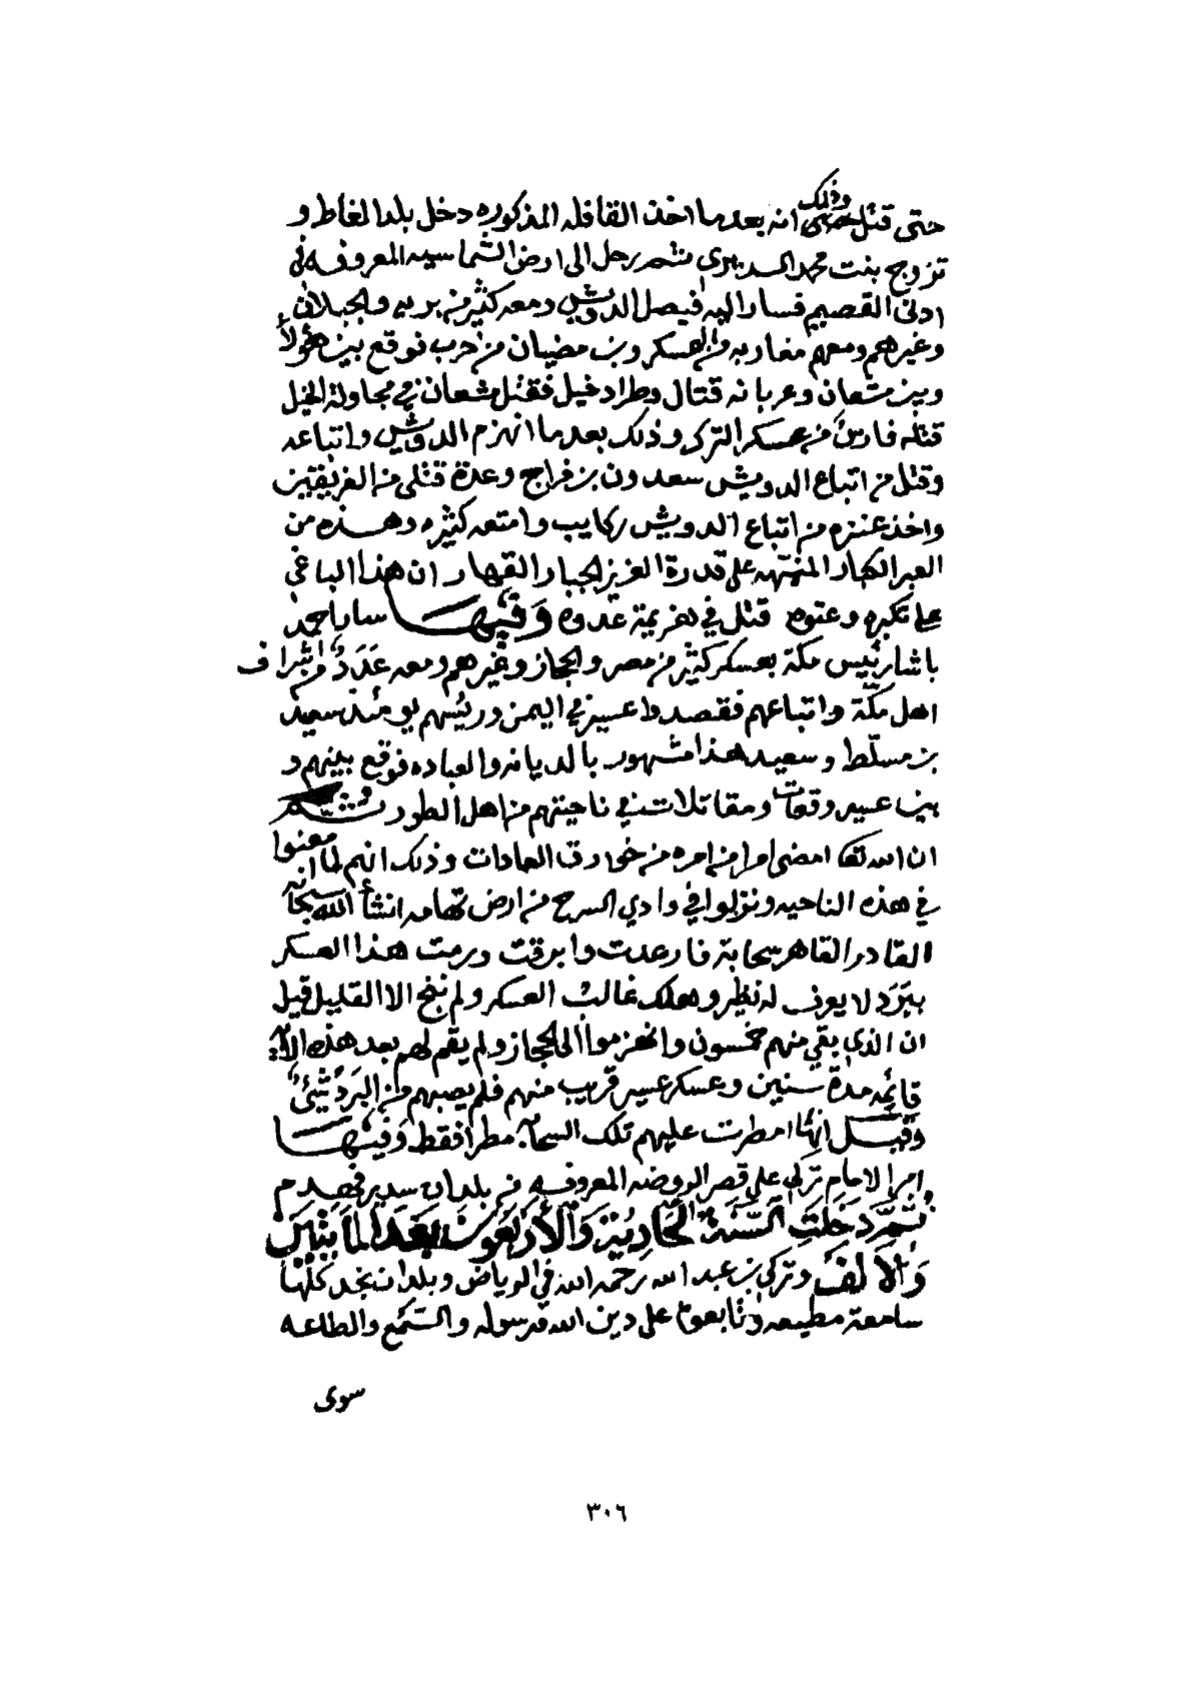 حتى قتل وذلك انه بعد ما اخذ القافله المذكوره دخل بلد الغاط و
تزوج بنت محمد السديري ثم رحل الى ارض الشماسيه المعروفه في
ادنى القصيم فسار اليه فيصل الدويش ومعه كثير من بريه والجبلان
وغيرهم ومعهم مغاربه من العسكر وبن مضيان من حرب فوقع بين هؤلاء
وبين مشعان وعربانه قتال وطراد خيل فقتل مشعان في مجاولة الخيل
قتله فارس من عسكر الترك وذلك بعد ما انهزم الدويش واتباعه
وقتل من اتباع الدويش سعدون بن فراج وعدة قتلى من الفريقين
واخذ عنزه من اتباع الدويش ركايب وامتعه كثيره وهذه من
العبر الكبار المنبهه على قدرة العزيز الجبار القهار ان هذا الباغي
على تكبره وعتوه قتل في هزيمة عدوه وَفيها سار احمد
باشا رئيس مكة بعسكر كثير من مصر والحجاز وغيرهم ومعه عَدَدٌ من اشراف
اهل مكّة واتباعهم فقصدوا عسير في اليمن ورئيسهم يومئذ سعيد
بن مسلّط وسعيد هذا مشهور بالديانه والعباده فوقع بينهم و
بين عسير وقعات ومقاتلات في ناحيتهم من اهل الطور ثم
ان الله تعا امضى امرا من امره من خوارق العادات وذلك انهم لما امعنوا
في هذه الناحيه ونزلوا في وادي السرح من ارض تهامه انشأ الله سبحانه
القادر القاهر سحابة فارعدت وابرقت ورمت هذا العسكر
ببَرَد لا يعرف له نظير وهلك غالب العسكر ولم ينج الا القليل قيل
ان الذي بقي منهم خمسون وانهزموا الى الحجاز ولم يقم لهم بعد هذه الآية
قائمه مدة سنين وعسكر عسير قريب منهم فلم يصبهم من البَرَد شيئ
وَقيل انها امطرت عليهم تلك السحابه مطرا فقط وَفيها
امر الامام تركي على قصر الروضه المعروفه في بلدان سدير فهدم
ثُمَّ دَخَلَتِ السَّنَة الحَادِيَة وَالأَرْبَعون بَعْدَ المأتين
وَالأَلف وتركي بن عبد الله رحمه الله في الرياض وبلدان نجد كلّها
سامعة مطيعه وتابعوه على دين الله ورسوله والسّمع والطاعه
سوى
٣٠٦